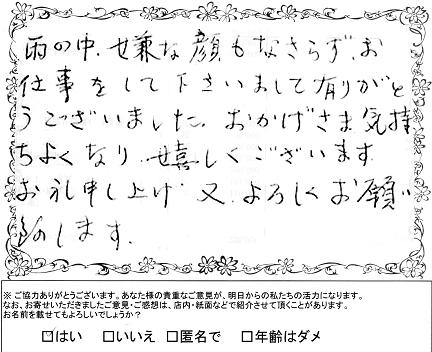 雨の中、嫌な顔もなさらず、お
仕事をして下さいまして有りがと
うございました。おかげさま気持
ちよくなり、嬉しくございます。
お礼申し上げ、又、よろしくお願い
致します。
※ ご協力ありがとうございます。あなた様の貴重なご意見が、明日からの私たちの活力になります。
なお、お寄せいただきましたご意見・ご感想は、店内・紙面などで紹介させて頂くことがあります。
お名前を載せてもよろしいでしょうか?
☑はい □いいえ □匿名で □年齢はダメ